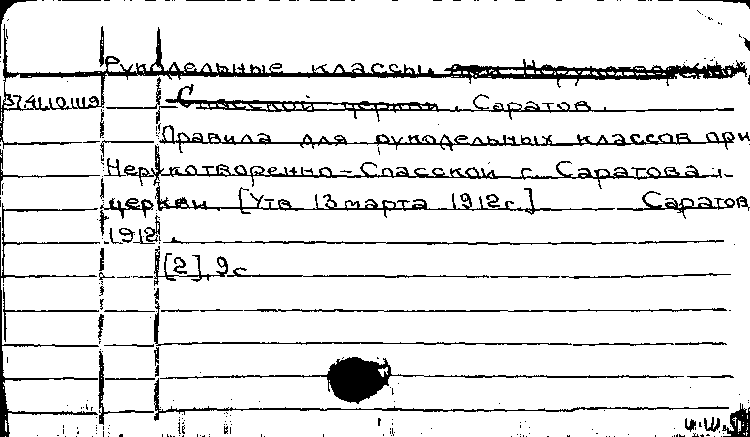 Рукодельные классы при Нерукотворенно-
Спасской церкви. Саратов.
Правила для рукодельных классов при
Нерукотворенно-Спасской г. Саратова
церкви. [Утв 13 марта 1912 г.] Саратов
1912.
[2], 9с